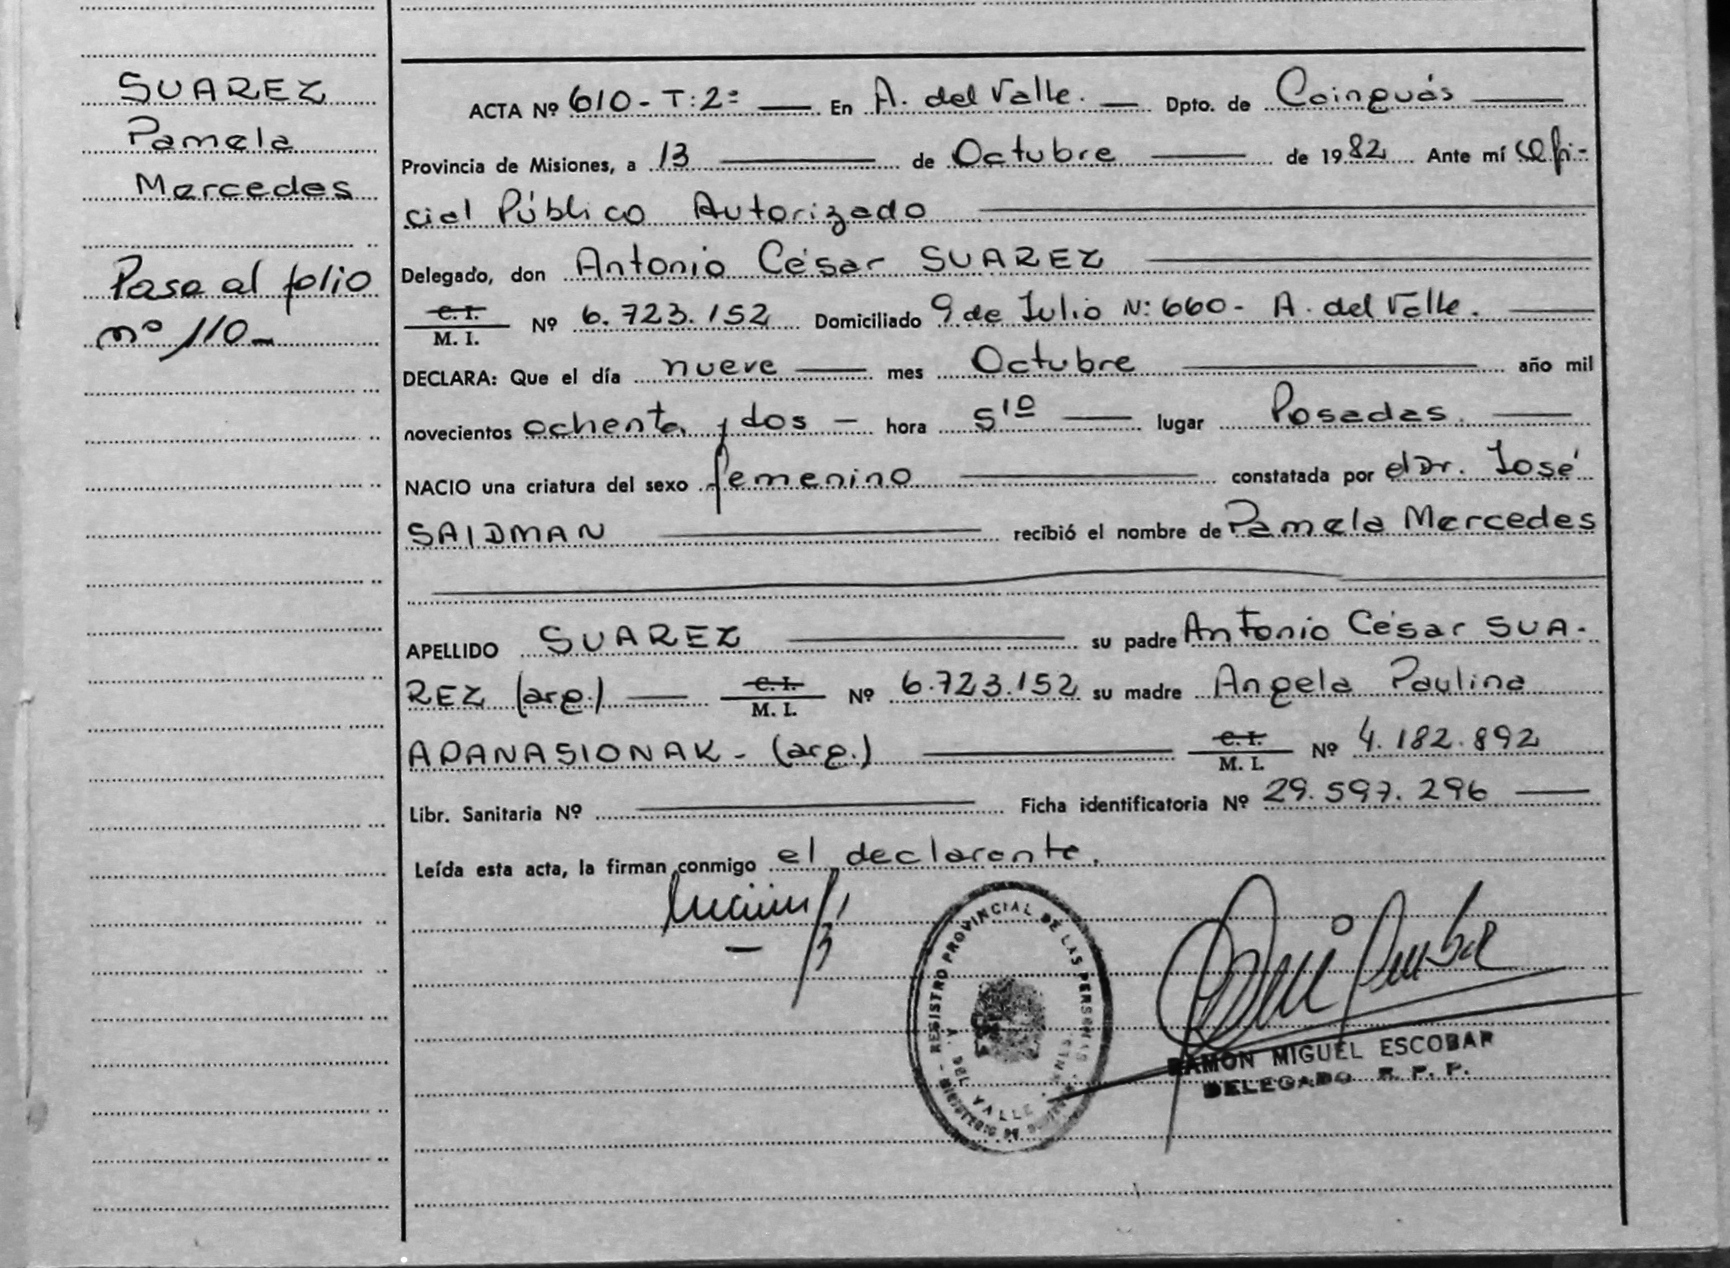 SUAREZ
Pamela
Mercedes
Pasa al folio
nº 110-
ACTA Nº 610 - T: 2º En A. del Valle. Dpto. de Cainguás
Provincia de Misiones, a 13 de Octubre de 1982 Ante mí Ofi-
cial Público Autorizado
Delegado, don Antonio César SUAREZ
C. I.
M. I. Nº 6.723.152 Domiciliado 9 de Julio Nº: 660 - A. del Valle.
DECLARA: Que el día nueve mes Octubre año mil
novecientos ochenta y dos - hora 5¹⁰ lugar Posadas.
NACIO una criatura del sexo femenino constatada por el Dr. José
SAIDMAN recibió el nombre de Pamela Mercedes
APELLIDO SUAREZ su padre Antonio César SUA-
REZ (arg.) C. I. M. I. Nº 6.723.152 su madre Angela Paulina
APANASIONAK - (arg.) C. I. M. I. Nº 4.182.892
Libr. Sanitaria Nº Ficha identificatoria Nº 29.597.296
Leída esta acta, la firman conmigo el declarante.
REGISTRO PROVINCIAL DE LAS PERSONAS
A. DEL VALLE
RAMON MIGUEL ESCOBAR
DELEGADO R. P. P.